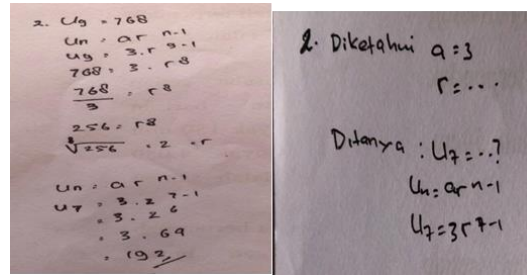 2. U9 = 768
Un = ar n-1
U9 = 3.r 9-1
768 = 3 . r8
768/3 = r8
256 = r8
8√256 = 2 = r
Un = ar n-1
U7 = 3.2 7-1
= 3.2 6
= 3.64
= 192
2. Diketahui a = 3
r = ...
Ditanya : U7 = ..?
Un = ar n-1
U7 = 3r 7-1